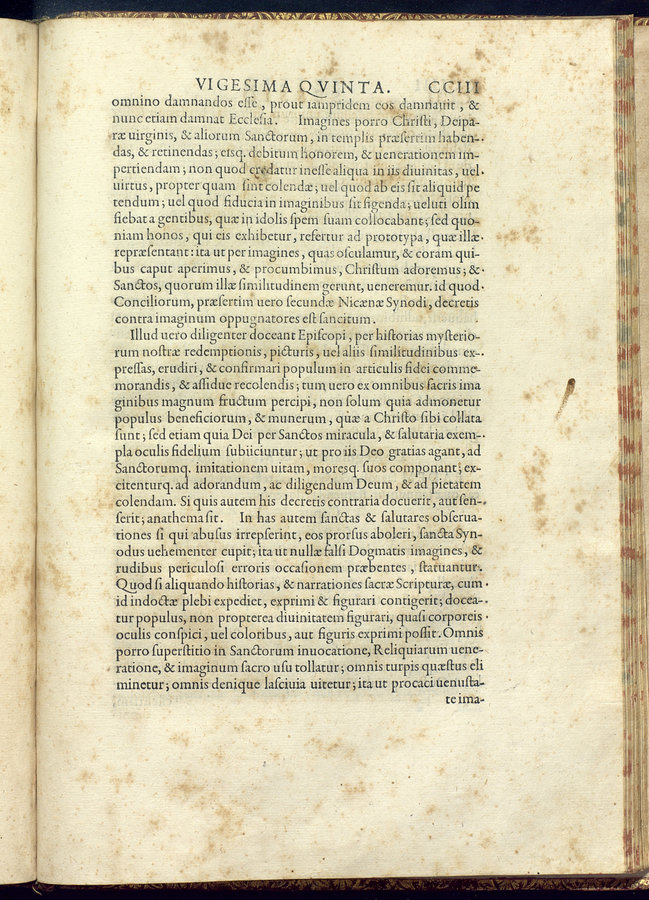 VIGESIMA QVINTA. CCIII
omnino damnandos esse, prout iampridem eos damnauit, &
nunc etiam damnat Ecclesia. Imagines porro Christi, Deipa-
ræ uirginis, & aliorum Sanctorum, in templis præsertim haben-
das, & retinendas; eisq. debitum honorem, & uenerationem im-
pertiendam; non quod credatur inesse aliqua in iis diuinitas, uel
uirtus, propter quam sint colendæ; uel quod ab eis sit aliquid pe
tendum; uel quod fiducia in imaginibus sit figenda; ueluti olim
fiebat a gentibus, quæ in idolis spem suam collocabant; sed quo-
niam honos, qui eis exhibetur, refertur ad prototypa, quæ illæ
repræsentant: ita ut per imagines, quas osculamur, & coram qui-
bus caput aperimus, & procumbimus, Christum adoremus; &
Sanctos, quorum illæ similitudinem gerunt, ueneremur. id quod
Conciliorum, præsertim uero secundæ Nicænæ Synodi, decretis
contra imaginum oppugnatores est sancitum.
Illud uero diligenter doceant Episcopi, per historias mysterio-
rum nostræ redemptionis, picturis, uel aliis similitudinibus ex-
pressas, erudiri, & confirmari populum in articulis fidei comme-
morandis, & assidue recolendis; tum uero ex omnibus sacris ima
ginibus magnum fructum percipi, non solum quia admonetur
populus beneficiorum, & munerum, quæ a Christo sibi collata
sunt; sed etiam quia Dei per Sanctos miracula, & salutaria exem-
pla oculis fidelium subiiciuntur; ut pro iis Deo gratias agant, ad
Sanctorumq. imitationem uitam, moresq. suos componant; ex-
citenturq. ad adorandum, ac diligendum Deum, & ad pietatem
colendam. Si quis autem his decretis contraria docuerit, aut sen-
serit; anathema sit. In has autem sanctas & salutares obserua-
tiones si qui abusus irrepserint, eos prorsus aboleri, sancta Syn-
odus uehementer cupit; ita ut nullæ falsi Dogmatis imagines, &
rudibus periculosi erroris occasionem præbentes, statuantur.
Quod si aliquando historias, & narrationes sacræ Scripturæ, cum
id indoctæ plebi expediet, exprimi & figurari contigerit; docea-
tur populus, non propterea diuinitatem figurari, quasi corporeis
oculis conspici, uel coloribus, aut figuris exprimi possit. Omnis
porro superstitio in Sanctorum inuocatione, Reliquiarum uene-
ratione, & imaginum sacro usu tollatur; omnis turpis quæstus eli
minetur; omnis denique lasciuia uitetur; ita ut procaci uenusta-
te ima-